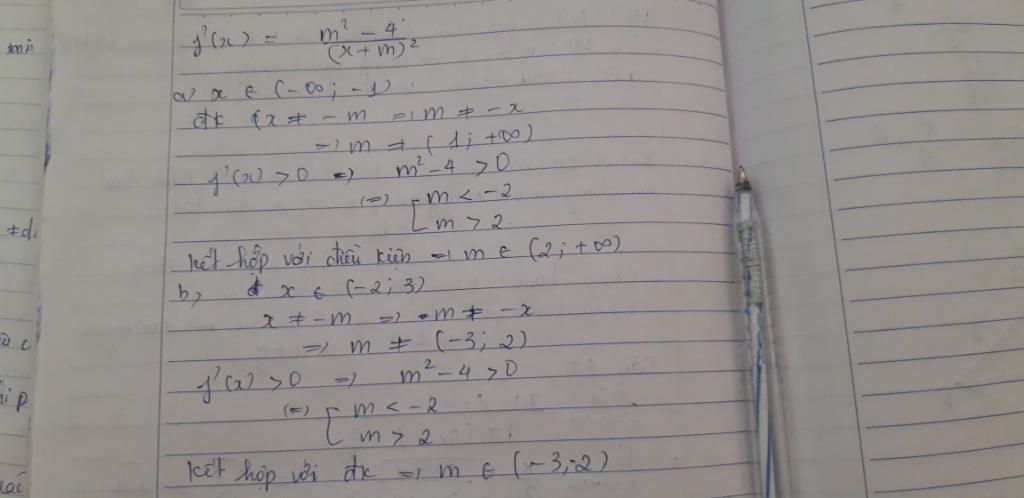 f'(x) = m² - 4 / (x + m)²
a) x ∈ (-∞; -1)
đk (x ≠ -m => m ≠ -x
=> m ≠ (1; +∞)
f'(x) > 0 => m² - 4 > 0
(=) [ m < -2
m > 2
kết hợp với điều kiện => m ∈ (2; +∞)
b, x ∈ (-2; 3)
x ≠ -m => m ≠ -x
=> m ≠ (-3; 2)
f'(x) > 0 => m² - 4 > 0
(=) [ m < -2
m > 2
kết hợp với đk => m ∈ (-3; -2)